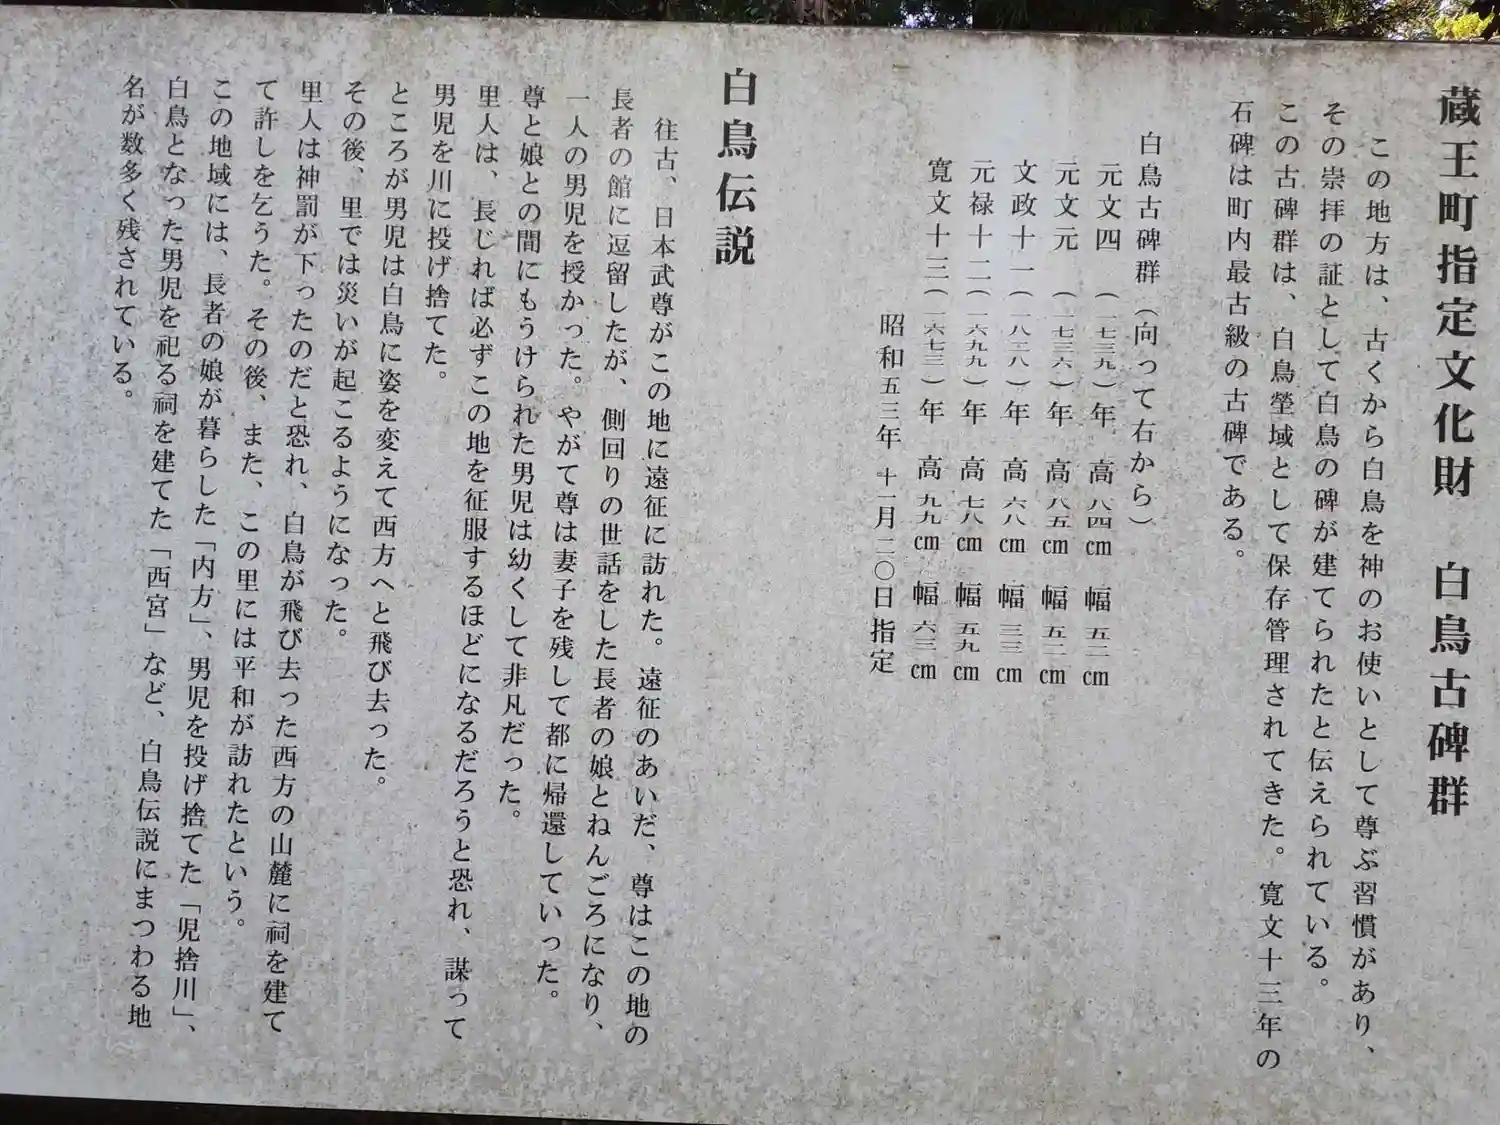 蔵王町指定文化財　白鳥古碑群
この地方は、古くから白鳥を神のお使いとして尊ぶ習慣があり、
その崇拝の証として白鳥の碑が建てられたと伝えられている。
この古碑群は、白鳥塋域として保存管理されてきた。寛文十三年の
石碑は町内最古級の古碑である。
白鳥古碑群（向って右から）
元文四（一七三九）年　高 八四㎝　幅 五二㎝
元文元（一七三六）年　高 八五㎝　幅 五二㎝
文政十一（一八二八）年　高 六八㎝　幅 三三㎝
元禄十二（一六九九）年　高 七八㎝　幅 五九㎝
寛文十三（一六七三）年　高 九九㎝　幅 六三㎝
昭和五三年　十一月二〇日指定
白鳥伝説
往古、日本武尊がこの地に遠征に訪れた。遠征のあいだ、尊はこの地の
長者の館に逗留したが、側回りの世話をした長者の娘とねんごろになり、
一人の男児を授かった。やがて尊は妻子を残して都に帰還していった。
尊と娘との間にもうけられた男児は幼くして非凡だった。
里人は、長じれば必ずこの地を征服するほどになるだろうと恐れ、謀って
男児を川に投げ捨てた。
ところが男児は白鳥に姿を変えて西方へと飛び去った。
その後、里では災いが起こるようになった。
里人は神罰が下ったのだと恐れ、白鳥が飛び去った西方の山麓に祠を建て
て許しを乞うた。その後、また、この里には平和が訪れたという。
この地域には、長者の娘が暮らした「内方」、男児を投げ捨てた「児捨川」、
白鳥となった男児を祀る祠を建てた「西宮」など、白鳥伝説にまつわる地
名が数多く残されている。